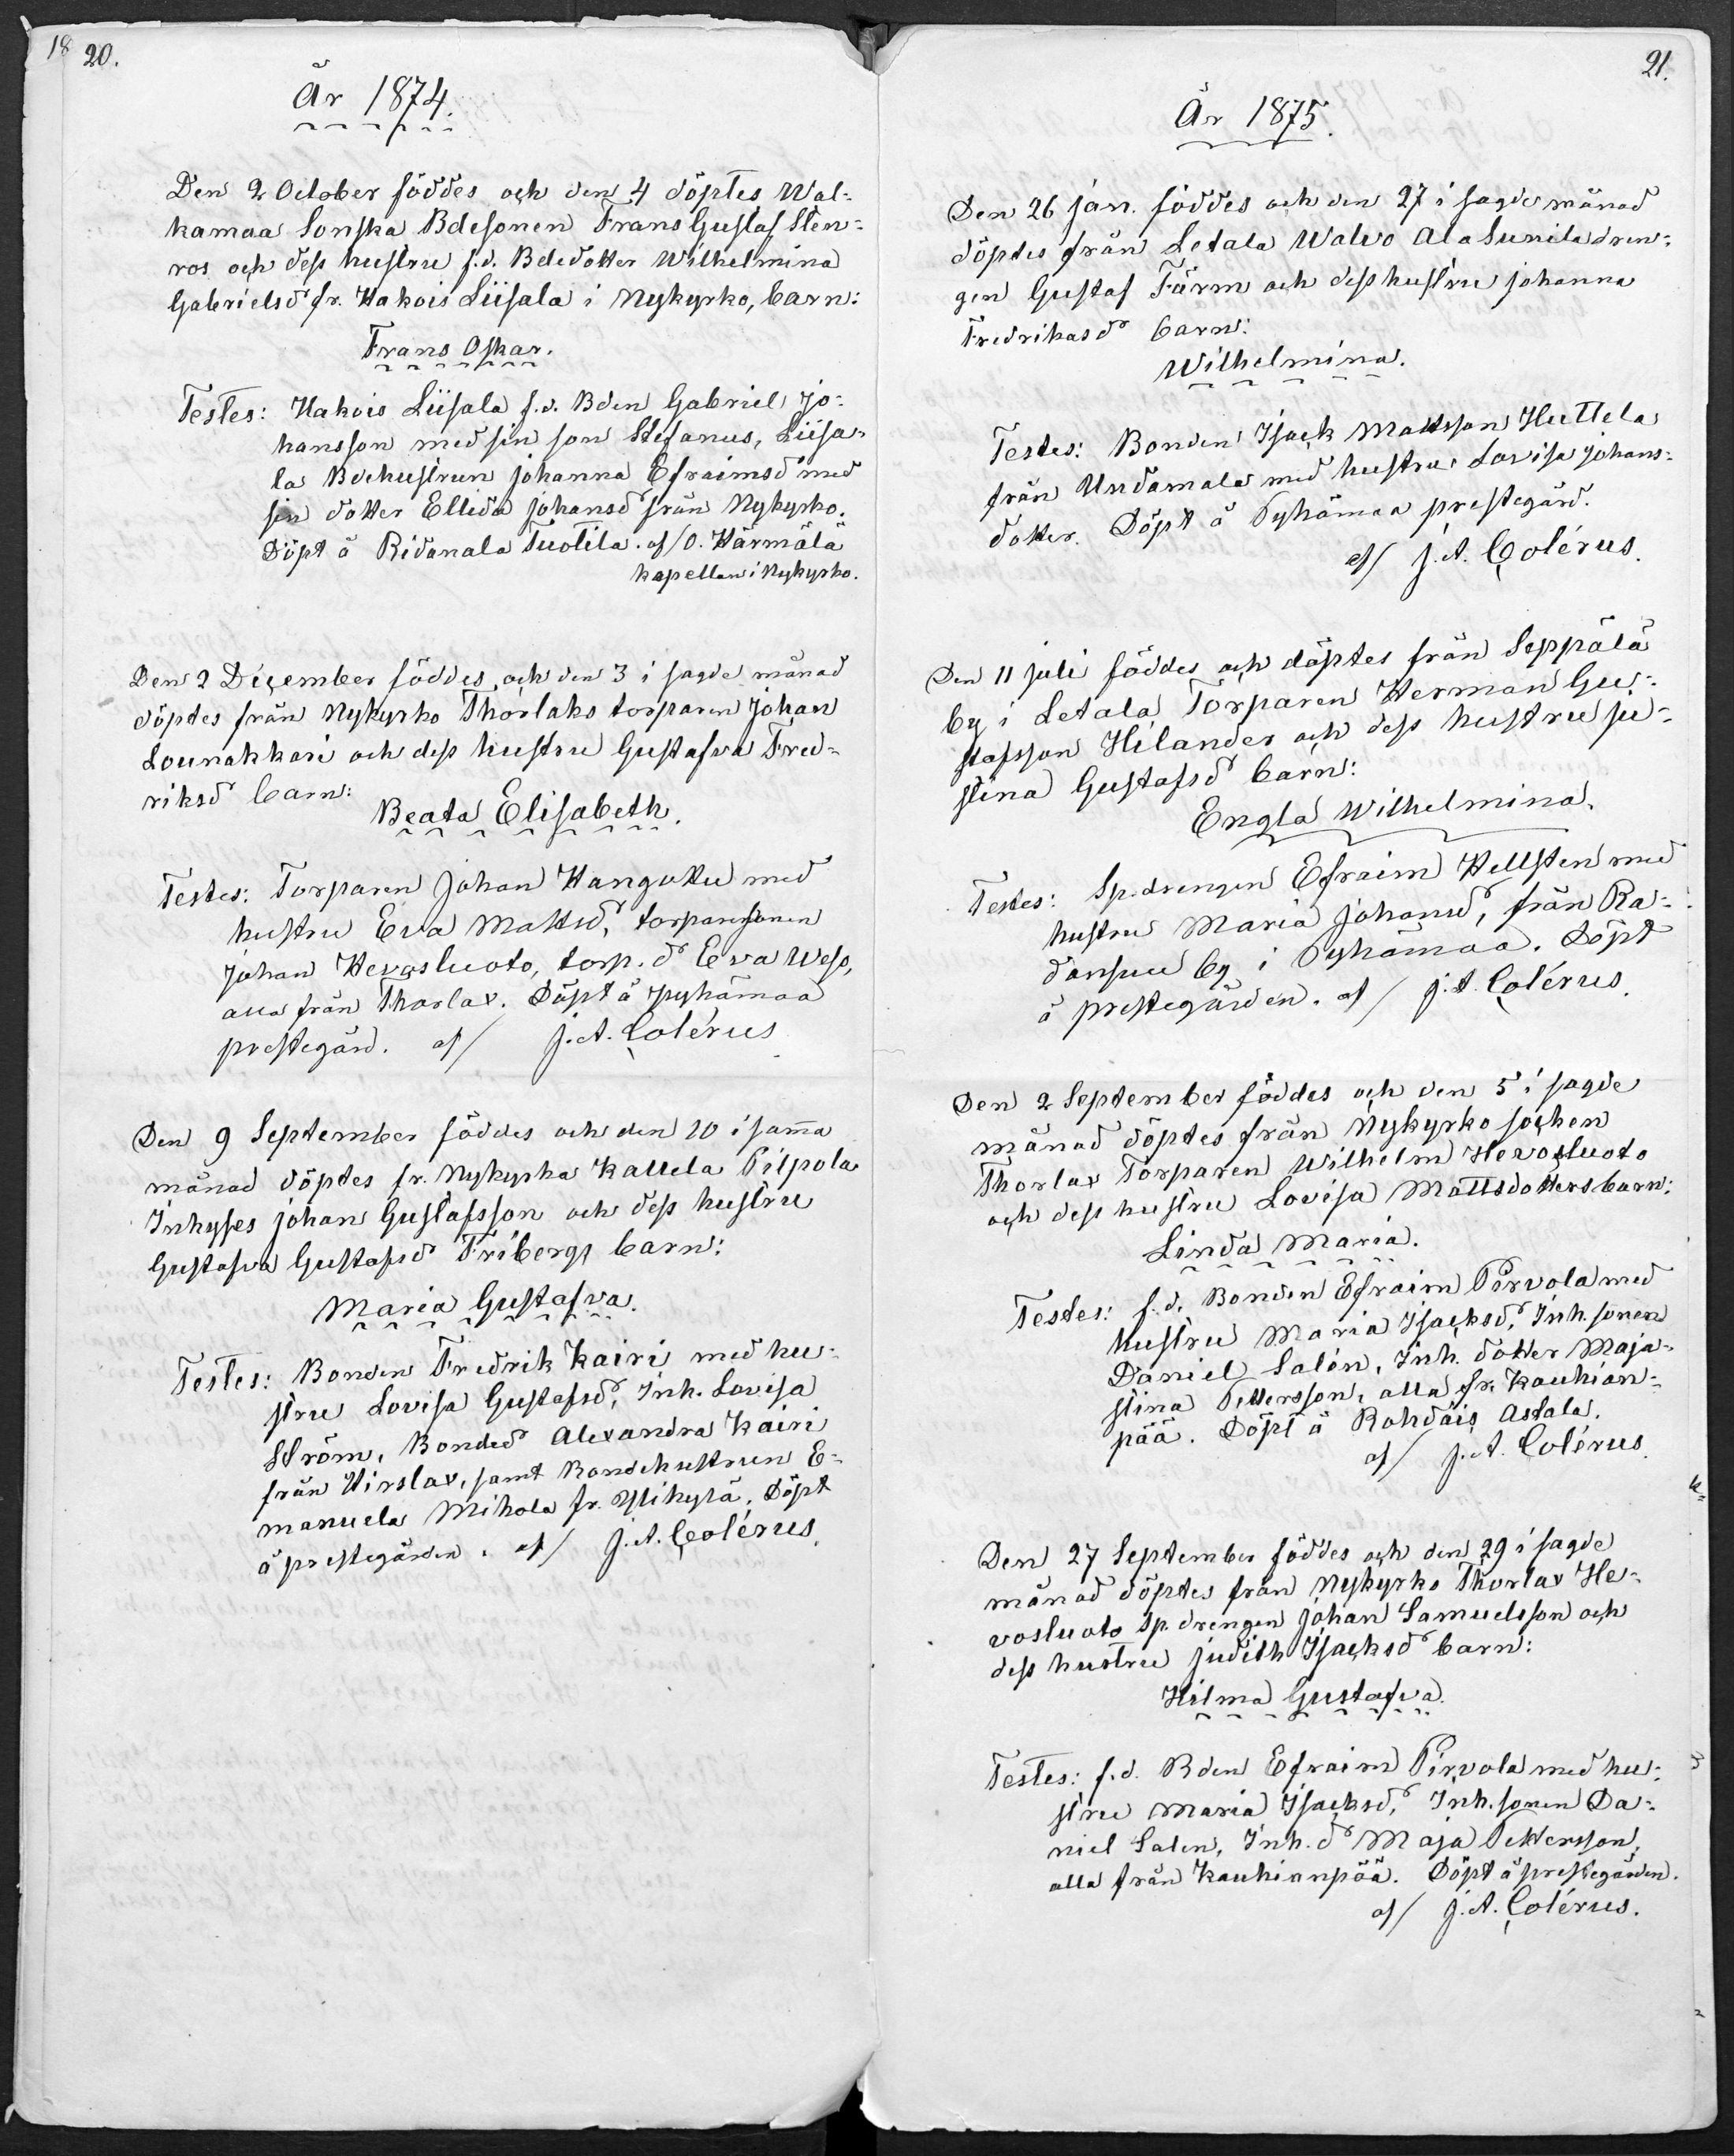 18 20.
År 1874.
Den 2 October föddes och den 4 döptes Wal=
kamaa Sonska Bdesonen Frans Gustaf Sten=
ros och dess hustru f.d. Bdedotter Wilhelmina
Gabrielsd fr. Hakois Liisala i Nykyrko, barn:
Frans Oskar.
Testes: Hakois Liisala f.d. Bden Gabriel Jo=
hansson med sin son Stefanus, Liisa=
la Bdehustrun Johanna Efraimsd med
sin dotter Ellida Johansd från Nykyrko.
Döpt å Ridanala Tuotila. af/ O. Härmälä
kapellan i Nykyrko.
Den 2 December föddes och den 3 i sagde månad
döptes från Nykyrko Thorlaks torparen Johan
Lounakkari och dess hustru Gustafva Fred=
riksd barn:
Beata Elisabeth.
Testes: Torparen Johan Hangottu med
hustru Eva Mattsd, torparesonen
Johan Hevosluoto, torp. d Eva Weso,
alla från Thorlax. Döpt å Pyhämaa
prestegård. af/ J. A. Colérus
Den 9 September föddes och den 10 i samma
månad döptes fr. Nykyrka Kallela Pilpola
Inhyses Johan Gustafsson och dess hustru
Gustafva Gustafsd Fribergs barn:
Maria Gustafva.
Testes: Bonden Fredrik Kairi med hu=
stru Lovisa Gustafsd, Inh. Lovisa
Ström, Bonded Alexandra Kairi
från Hirslax, samt Bondehustrun E=
manuela Mihola fr. Ylikylä. Döpt
å prestegården. af/ J. A. Colérus.
21.
År 1875.
Den 26 jan. föddes och den 27 i sagde månad
döptes från Letala Walvo Ala Sunila dren=
gen Gustaf Färm och dess hustru Johanna
Fredrikasd barn:
Wilhelmina.
Testes: Bonden Isack Mattsson Huttela
från Undamala med hustru Lovisa Johans=
dotter. Döpt å Pyhämaa prestegård.
af/ J. A. Colérus.
Den 11 juli föddes och döptes från Seppälä
by i Letala Torparen Herman Gu=
stafsson Hilander och dess hustru Ju=
stina Gustafsd barn:
Engla Wilhelmina.
Testes: Sp. drengen Efraim Hellsten med
hustru Maria Johansd, från Ra=
dansuu by i Pyhämaa. Döpt
å prestegården. af/ J. A. Colérus.
Den 2 September föddes och den 5 i sagde
månad döptes från Nykyrko sochen
Thorlax Torparen Wilhelm Hevosluoto
och dess hustru Lovisa Mattsdotters barn:
Linda Maria.
Testes: f.d. Bonden Efraim Pirvola med
hustru Maria Isacksd, Inh. sonen
Daniel Salén, Inh. dotter Maja=
stina Pettersson, alla fr. Kauhian=
pää. Döpt å Rohdais Astala.
af/ J. A. Colérus.
Den 27 September föddes och den 29 i sagde
månad döptes från Nykyrko Thorlax He=
vosluoto Sp. drengen Johan Samuelsson och
dess hustru Judith Isacksd barn:
Hilma Gustafva.
Testes: f.d. Bden Efraim Pirvola med hu=
stru Maria Isacksd, Inh. sonen Da=
niel Salen, Inh. d Maja Pettersson,
alla från Kauhianpää. Döpt å prestegården.
af/ J. A. Colérus.